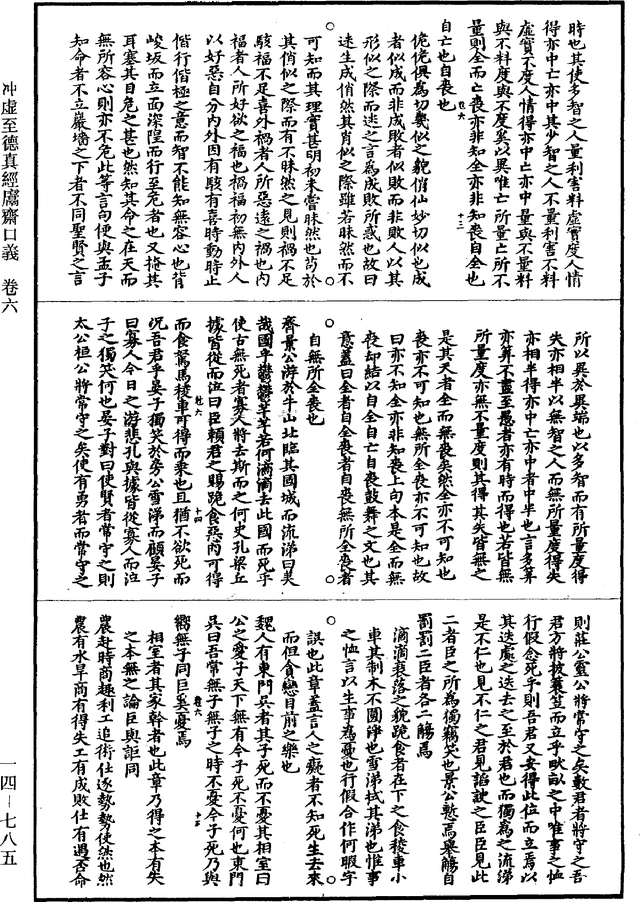 時也其使多智之人量利害料虛實度人情
得亦中亡亦中其少智之人不量利害不料
虛實不度人情得亦中亡亦中量與不量料
與不料度與不度奚以異唯亡所量亡所不
量則全而亡喪亦非知全亦非知喪自全也
自亡也自喪也
卷六 十三
佹佹俱為切幾似之貌俏仙妙切似也成
者似成而非成敗者似敗而非敗人以其
形似之際而迷之言為成敗所惑也故曰
迷生成俏然其肖似之際雖若昧然而不
可知而其理實甚明初未嘗昧然也苟於
其俏似之際而有不昧然之見則禍不足
駭福不足喜外禍者人所惡遠之禍也內
福者人所好欲之福也禍福初無內外人
以好惡自分內外因有駭有喜時動時止
偕行偕極之意而智不能知無容心也背
峻坂而立面深隍而行至危者也又掩其
耳塞其目危之甚也然知其命之在天而
無所容心則亦不危此等言句便與孟子
知命者不立巖墻之下者不同聖賢之言
所以異於異端也以多智而有所量度得
失亦相半以無智之人而無所量度得失
亦相半得亦中亡亦中者中半也言多算
亦算不盡至愚者亦有時而得也若皆無
所量度亦無不量度則其得其失皆無之
是其天者全而無喪矣然全亦不可知也
喪亦不可知也無所全喪亦不可知也故
曰亦不知全亦非知喪上句本是全而無
喪却結以自全自亡自喪鼓舞之文也其
意蓋曰全者自全喪者自喪無所全喪者
自無所全喪也
齊景公游於牛山北臨其國城而流涕曰美
哉國乎鬱鬱芊芊若何滴滴去此國而死乎
使古無死者寡人將去斯而之何史孔梁丘
據皆從而泣曰臣賴君之賜跪食惡肉可得
卷六 十四
而食駑馬稜車可得而乘也且猶不欲死而
況吾君乎晏子獨笑於旁公雪涕而顧晏子
曰寡人今日之游悲孔與據皆從寡人而泣
子之獨笑何也晏子對曰使賢者常守之則
太公桓公將常守之矣使有勇者而常守之
則莊公靈公將常守之矣數君者將守之吾
君方將披蓑笠而立乎畎畝之中唯事之恤
行假念死乎則吾君又安得此位而立焉以
其迭處之迭去之至於君也而獨為之流涕
是不仁也見不仁之君見諂諛之臣臣見此
二者臣之所為獨竊笑也景公慙焉舉觴自
罰罰二臣者各二觴焉
滴滴衰落之貌跪食者在下之食稜車小
車其制木不圓淨也雪涕拭其涕也惟事
之恤言以生事為憂也行假合作何暇字
誤也此章蓋言人之癡者不知死生去來
而但貪戀目前之樂也
魏人有東門吳者其子死而不憂其相室曰
公之愛子天下無有今子死不憂何也東門
吳曰吾常無子無子之時不憂今子死乃與
卷六 十五
嚮無子同臣奚憂焉
相室者其家幹者也此章乃得之本有失
之本無之論臣與詎同
農赴時商趣利工追術仕逐勢勢使然也然
農有水旱商有得失工有成敗仕有遇否命
冲虛至德真經鬳齋口義 卷六
一四–七八五